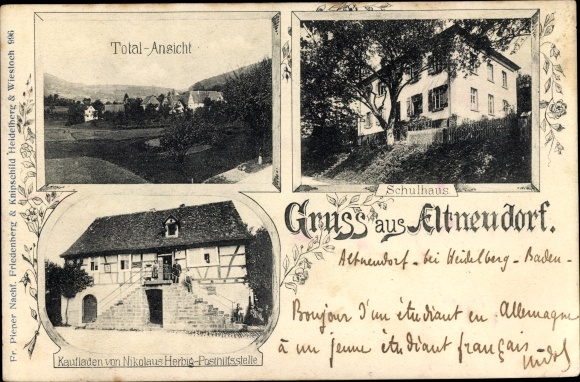 Fr. Piener Nachf. Friedenberg & Knipschild Heidelberg & Wiesloch 996
Total-Ansicht
Schulhaus
Gruss aus Altneudorf.
Altneudorf - bei Heidelberg - Baden -
Bonjour d'un étudiant en Allemagne
à un jeune étudiant français -
Kaufladen von Nikolaus Herbig-Posthilfsstelle